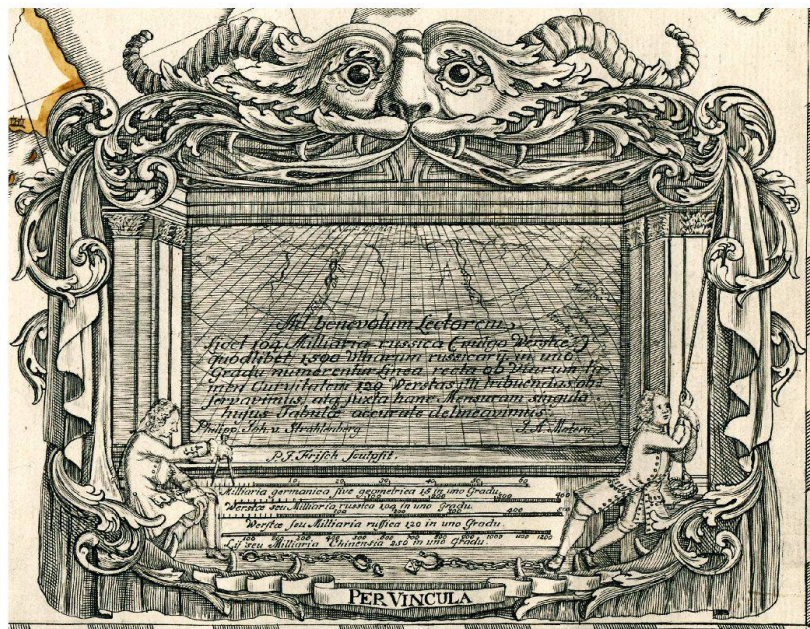 Ad benevolum Lectorem,
licet 104 Milliaria russica (vulgo Werstæ)
quodlibet 1500 Ulnarum russicarū in uno
Gradu numerentur linea recta ob Viarum ta
men Curvitatem 120 Werstas iſti tribuendas ob
ſervavimus, atq juxta hanc Mensuram singula
hujus Tabulæ accurate delineavimus.
Philipp Joh. v. Strahlenberg J. A. Matern
P. J. Frisch sculpsit.
10 20 30 40 50 60
Milliaria germanica sive geometrica 15 in uno Gradu.
100 200 300 400
Werstæ seu Milliaria russica 104 in uno Gradu.
100 200 300 400 500
Werstæ seu Milliaria russica 120 in uno Gradu.
100 200 300 400 500 600 700 800 900 1000 1100 1200
Li seu Milliaria Chinensia 250 in uno Gradu.
PER VINCULA